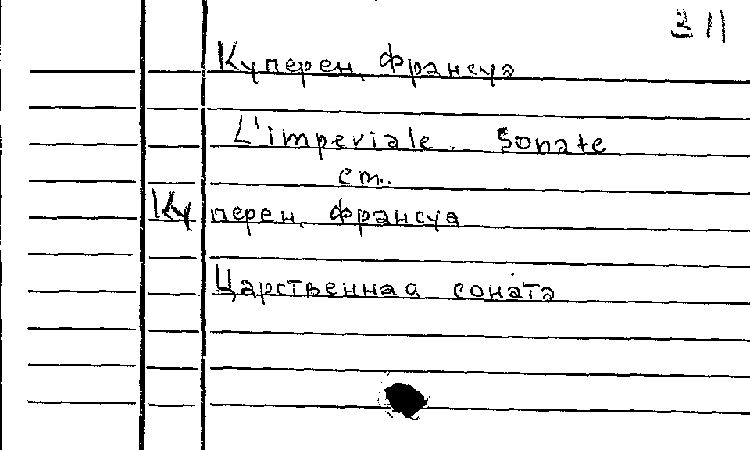 311
Куперен, Франсуа
L'imperiale. Sonate
см.
Куперен, Франсуа
Царственная соната